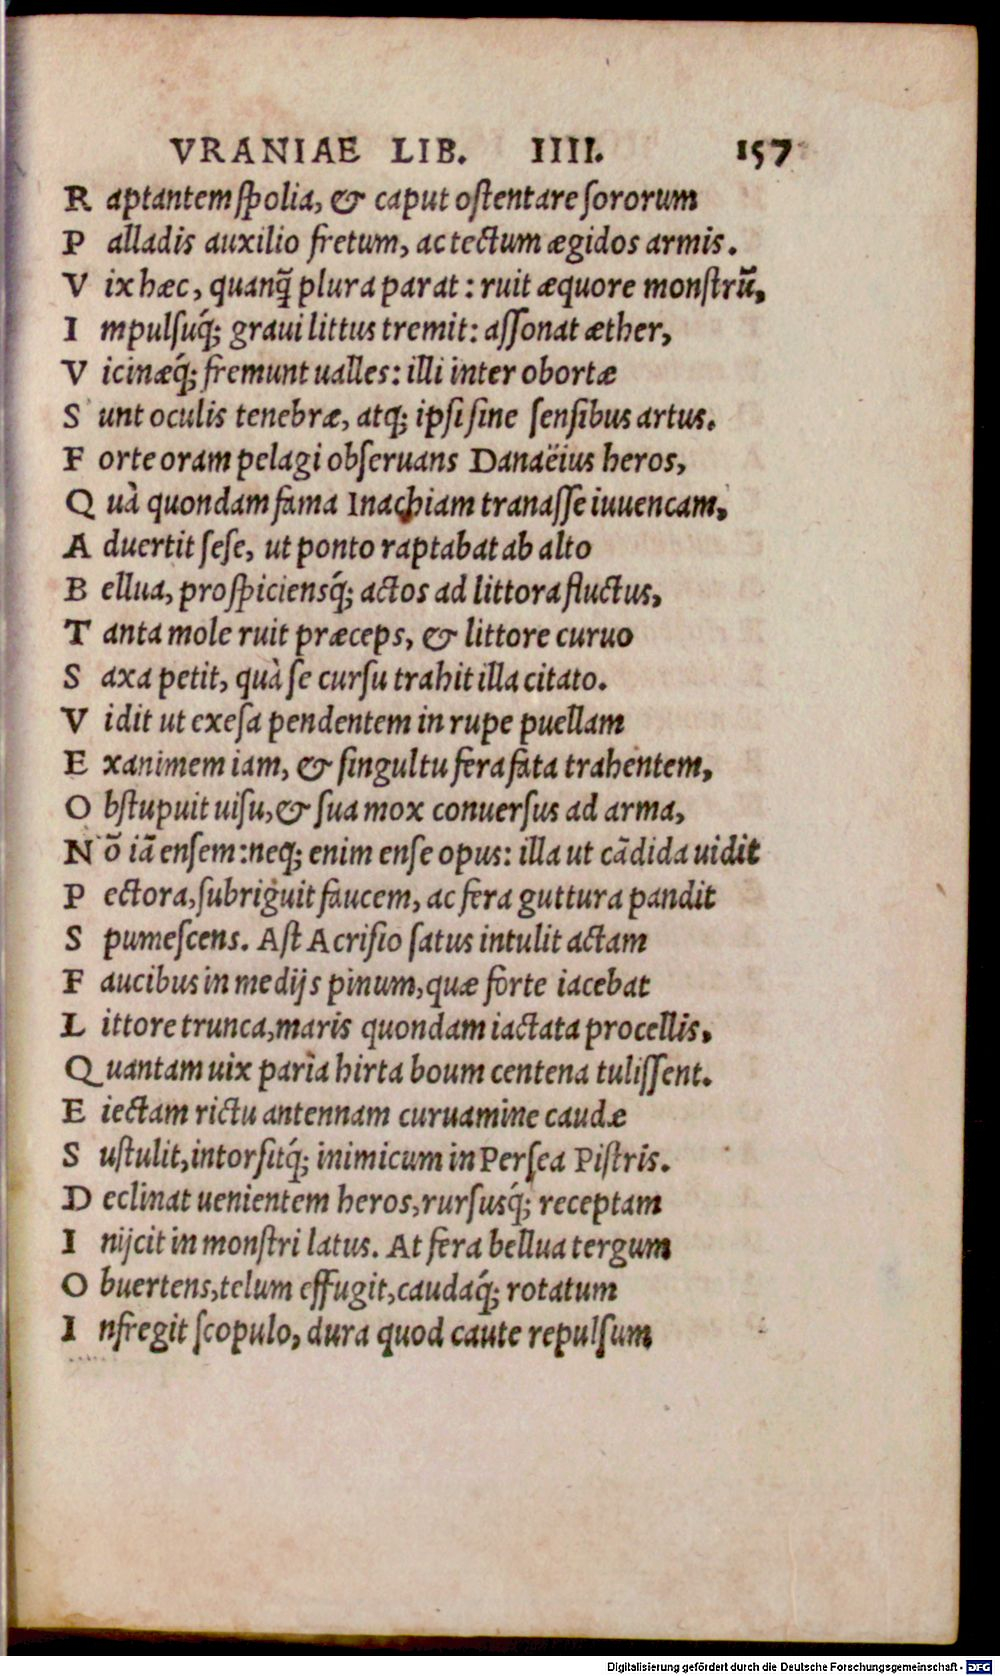 VRANIAE LIB. IIII. 157
R aptantem ſpolia, & caput oſtentare ſororum
P alladis auxilio fretum, ac tectum ægidos armis.
V ix hæc, quanq̃ plura parat: ruit æquore monſtrũ,
I mpulſuq́; graui littus tremit: aſſonat æther,
V icinæq́; fremunt ualles: illi inter obortæ
S unt oculis tenebræ, atq; ipſi ſine ſenſibus artus.
F orte oram pelagi obſeruans Danaëius heros,
Q uà quondam fama Inachiam tranaſſe iuuencam,
A duertit ſeſe, ut ponto raptabat ab alto
B ellua, proſpiciensq́; actos ad littora fluctus,
T anta mole ruit præceps, & littore curuo
S axa petit, quà ſe curſu trahit illa citato.
V idit ut exeſa pendentem in rupe puellam
E xanimem iam, & ſingultu fera fata trahentem,
O bſtupuit uiſu, & ſua mox conuerſus ad arma,
N õ iã enſem: neq; enim enſe opus: illa ut cãdida uidit
P ectora, ſubriguit faucem, ac fera guttura pandit
S pumeſcens. Aſt Acriſio ſatus intulit actam
F aucibus in medijs pinum, quæ forte iacebat
L ittore trunca, maris quondam iactata procellis,
Q uantam uix paria hirta boum centena tuliſſent.
E iectam rictu antennam curuamine caudæ
S uſtulit, intorſitq́; inimicum in Perſea Piſtris.
D eclinat uenientem heros, rurſusq́; receptam
I nijcit in monſtri latus. At fera bellua tergum
O buertens, telum effugit, caudaq́; rotatum
I nfregit ſcopulo, dura quod caute repulſum
Digitalisierung gefördert durch die Deutsche Forschungsgemeinschaft - DFG